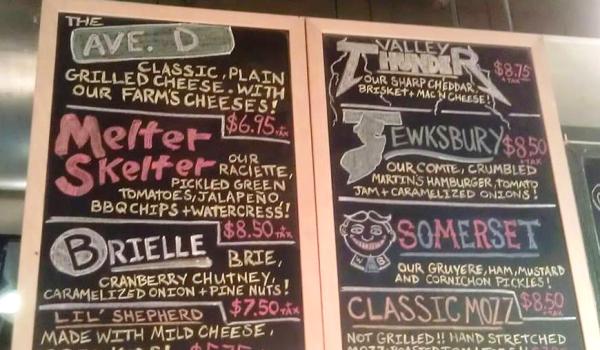 THE
AVE. D
CLASSIC, PLAIN
GRILLED CHEESE. WITH
OUR FARM'S CHEESES!
$6.95 +TAX
Melter
Skelter
OUR
RACIETTE,
PICKLED GREEN
TOMATOES, JALAPEÑO,
BBQ CHIPS + WATERCRESS!
$8.50 +TAX
BRIELLE
BRIE,
CRANBERRY CHUTNEY,
CARAMELIZED ONION + PINE NUTS!
LIL' SHEPHERD
$7.50 +TAX
MADE WITH MILD CHEESE,
VALLEY
THUNDER
$8.75
+TAX
OUR SHARP CHEDDAR,
BRISKET + MAC N CHEESE!
JEWKSBURY
$8.50
+TAX
OUR COMTE, CRUMBLED
MARTIN'S HAMBURGER, TOMATO
JAM + CARAMELIZED ONIONS!
SOMERSET
OUR GRUYERE, HAM, MUSTARD
AND CORNICHON PICKLES!
CLASSIC MOZZ
$8.50
+TAX
NOT GRILLED!! HAND STRETCHED